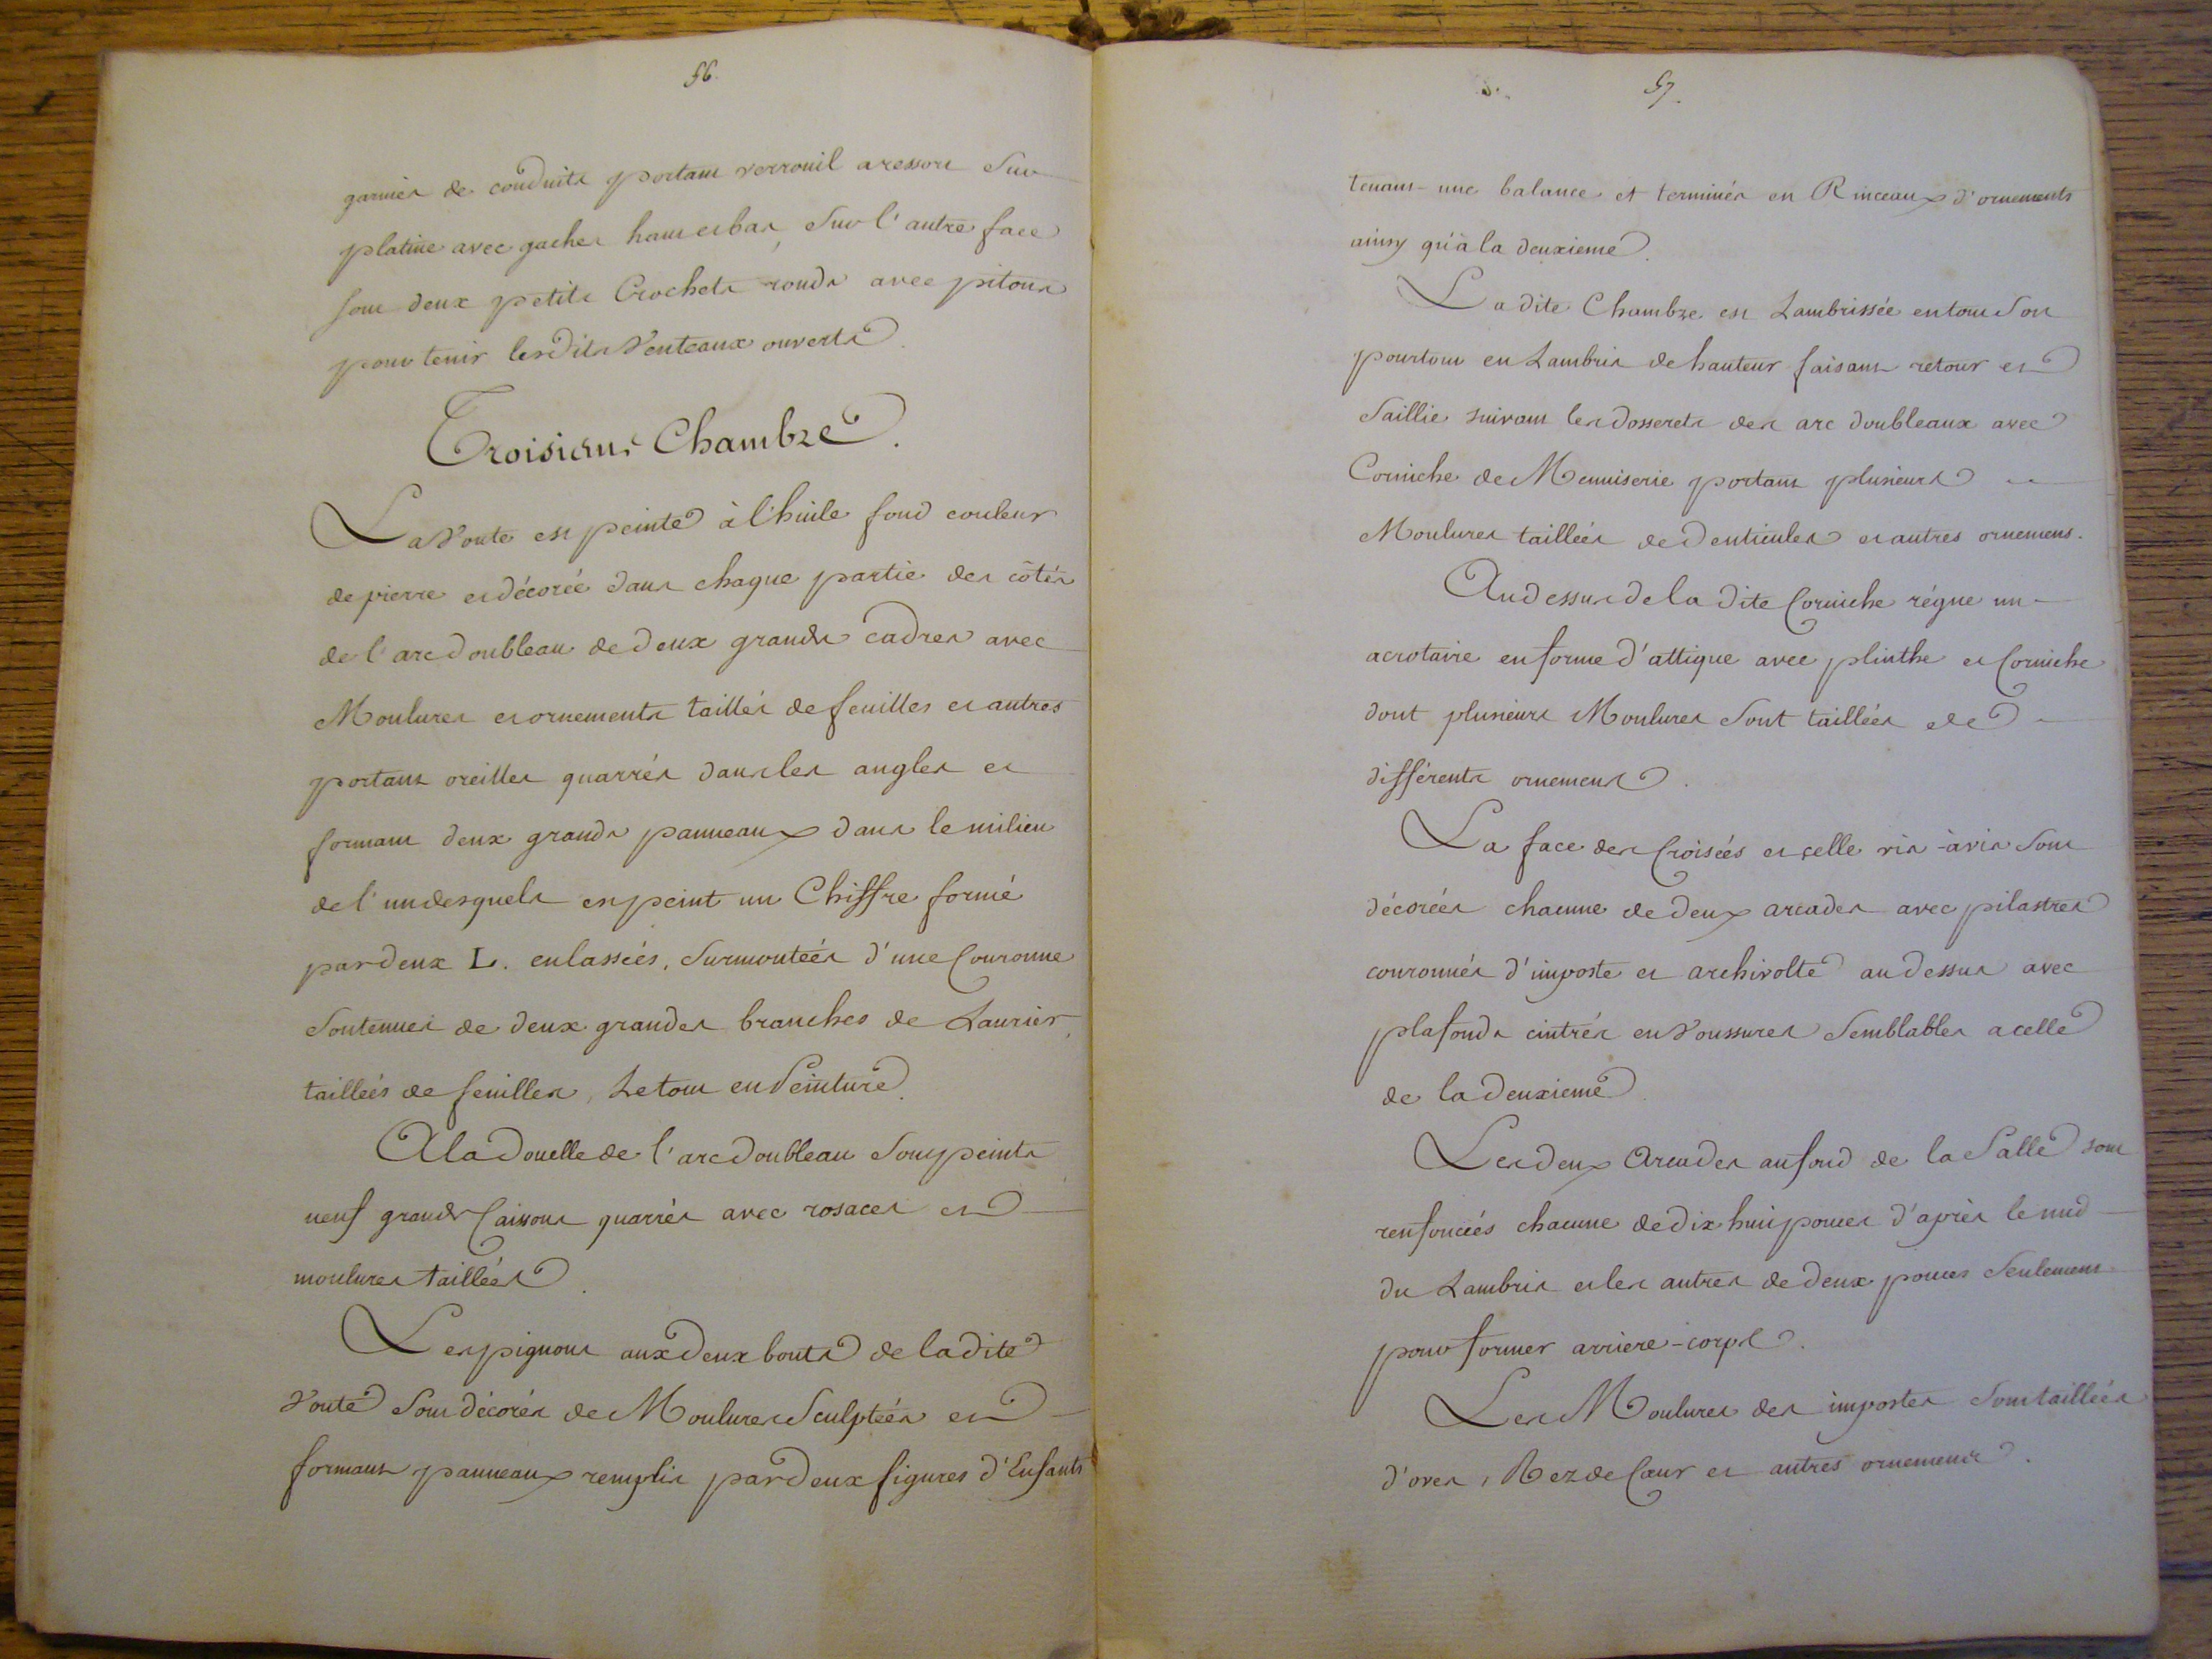 56.
garnies de conduits portant verrouil a ressort Sur
platine avec gaches haut et bas, Sur l'autre face
sont deux petits Crochets ronds avec pitons
pour tenir lesdits Venteaux ouverts.
Troisieme Chambre.
La Voute est peinte à l'huile fond couleur
de pierre et décorée dans chaque partie des côtés
de l'arc Doubleau de Deux grands cadres avec
Moulures et ornements taillés de feuilles et autres
portant oreilles quarrés dans les angles et
formant deux grands panneaux dans le milieu
de l'un desquels est peint un Chiffre formé
par deux L. enlassées, Surmontées d'une Couronne
Soutenues de deux grandes branches de Laurier,
taillées de feuilles, Le tout en Peinture.
A la Douelle de l'arc Doubleau Sont peints
neuf grands Caissons quarrés avec rosaces et
moulures taillées.
Les pignons aux Deux bouts de la dite
Voute Sont décorés de Moulures Sculptées et
formant panneaux remplis par Deux figures d'Enfants
57.
tenant une balance et terminés en Rinceaux d'ornements
ainsy qu'à la deuxieme.
La dite Chambre est Lambrissée en tout Son
pourtour en Lambris de hauteur faisant retour et
Saillie suivant les dosserets des arc doubleaux avec
Corniche de Menuiserie portant plusieurs
Moulures taillées de Denticules et autres ornemens.
Au dessus de la dite Corniche régne un
acrotaire en forme d'attique avec plinthe et Corniche
dont plusieurs Moulures Sont taillées de
différents ornemens.
La face des Croisées et celle vis-à-vis Sont
décorées chacune de deux arcades avec pilastres
couronnés d'imposte et archivolte au dessus avec
plafonds cintrés en Voussures Semblables a celle
de la Deuxieme.
Les deux Arcades au fond de la Salle sont
renfoncées chacune de dix huit pouces d'après le nud
du Lambris et les autres de deux pouces Seulement
pour former arriere-corps.
Les Moulures des impostes Sont taillées
d'oves, Rez de Cœur et autres ornemens.